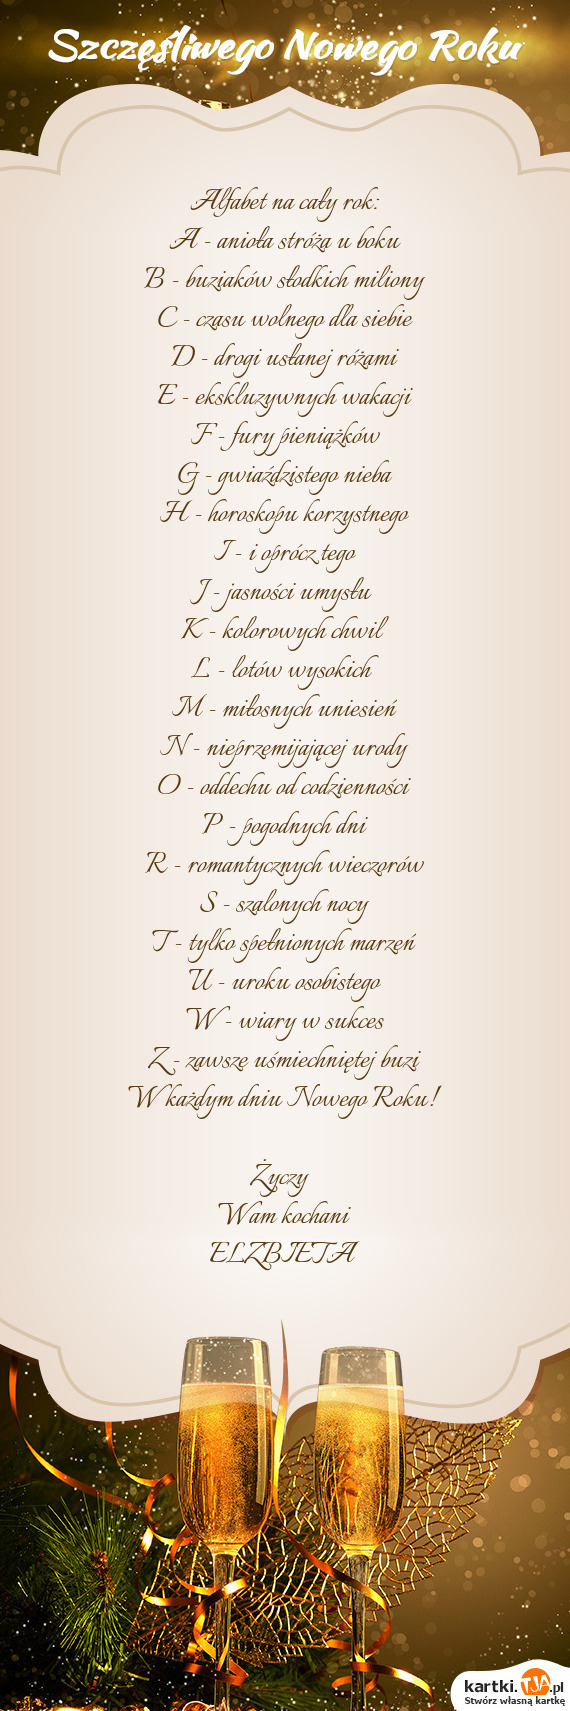 Szczęśliwego Nowego Roku
Alfabet na cały rok:
A - anioła stróża u boku
B - buziaków słodkich miliony
C - czasu wolnego dla siebie
D - drogi usłanej różami
E - ekskluzywnych wakacji
F - fury pieniążków
G - gwiaździstego nieba
H - horoskopu korzystnego
I - i oprócz tego
J - jasności umysłu
K - kolorowych chwil
L - lotów wysokich
M - miłosnych uniesień
N - nieprzemijającej urody
O - oddechu od codzienności
P - pogodnych dni
R - romantycznych wieczorów
S - szalonych nocy
T - tylko spełnionych marzeń
U - uroku osobistego
W - wiary w sukces
Z - zawsze uśmiechniętej buzi
W każdym dniu Nowego Roku!
Życzy
Wam kochani
ELZBIETA
kartki.TJA.pl
Stwórz własną kartkę